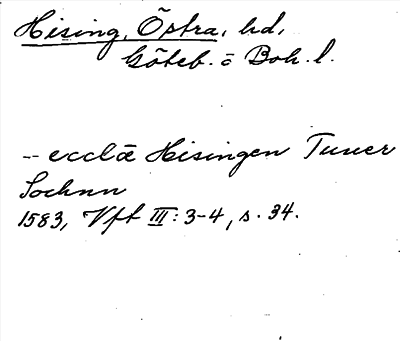 Hising, Östra, hd,
Göteb. o Boh. l.
-- ecclā Hisingen Tuuer
Sochnn
1583, Vft III: 3-4, s. 34.